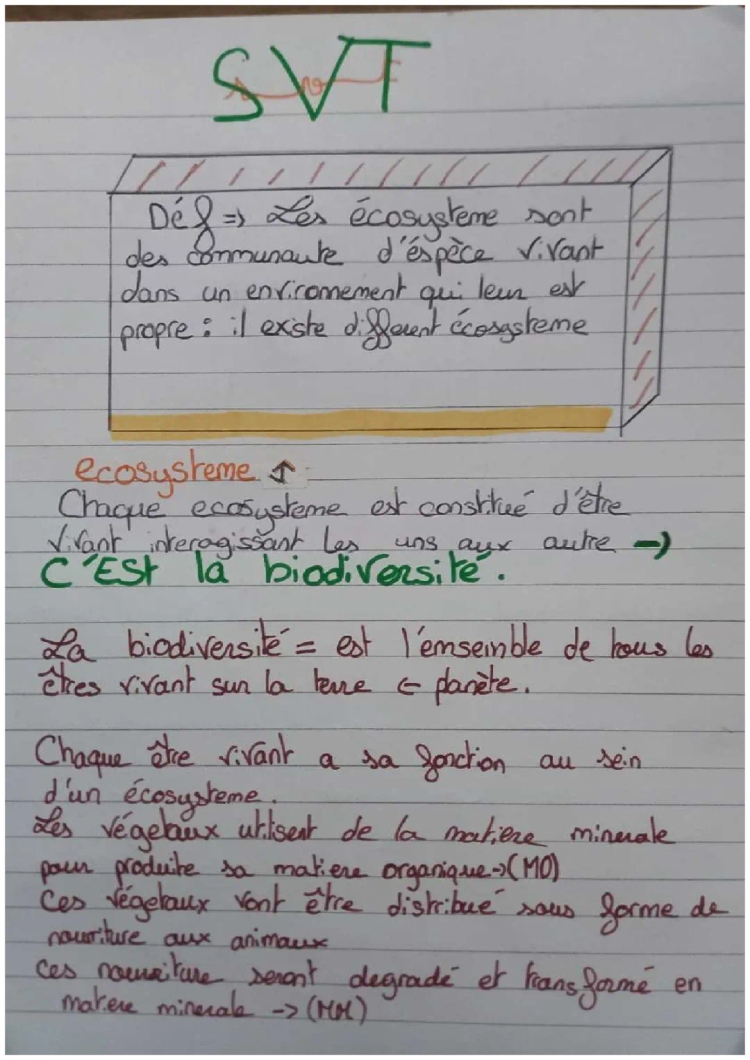 SVT
Déf => Les écosysteme sont
des communauté d'éspèce vivant
dans un environnement qui leur est
propre : il existe different écosysteme
ecosysteme ↑
Chaque ecosysteme est constitué d'être
vivant interagissant les uns aux autre →
C'Est la biodiversité.
La biodiversité = est l'emseinble de tous les
êtres vivant sur la terre ← planète.
Chaque être vivant a sa fonction au sein
d'un écosysteme.
Les végetaux utilisent de la matiere minerale
pour produite sa matiere organique->(MO)
Ces végetaux vont être distribué sous forme de
nourriture aux animaux
Ces nourriture seront degradé et transformé en
matiere minerale -> (MM)